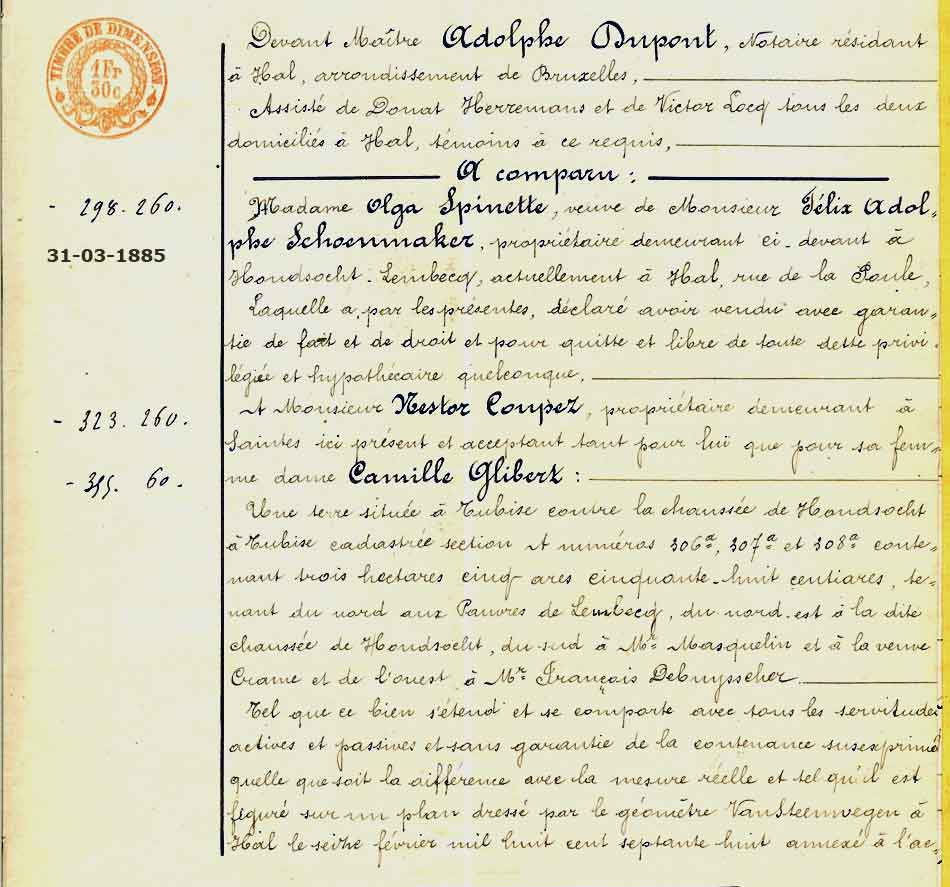 TIMBRE DE DIMENSION
1 Fr
30 c
Devant Maître Adolphe Dupont, Notaire résidant
à Hal, arrondissement de Bruxelles,
Assisté de Donat Herremans et de Victor Locq tous les deux
domiciliés à Hal, témoins à ce requis,
A comparu :
- 298. 260.
Madame Olga Spinette, veuve de Monsieur Félix Adol-
phe Schoenmaker, propriétaire demeurant ci-devant à
31-03-1885
Hondsocht-Lembecq, actuellement à Hal, rue de la Poule,
Laquelle a, par les présentes, déclaré avoir vendu avec garan-
tie de fait et de droit et pour quitte et libre de toute dette privi-
légiée et hypothécaire quelconque,
A Monsieur Nestor Coupez, propriétaire demeurant à
- 323. 260.
Saintes ici présent et acceptant tant pour lui que pour sa fem-
me dame Camille Glibert :
60.
Une terre située à Tubise contre la chaussée de Hondsocht
à Tubise cadastrée section A numéros 306a, 307a et 308a conte-
nant trois hectares cinq ares cinquante-huit centiares, te-
nant du nord aux Pauvres de Lembecq, du nord-est à la dite
chaussée de Hondsocht, du sud à Mr Masquelin et à la veuve
Crame et de l'ouest à Mr François Debuysscher.
Tel que ce bien s'étend et se comporte avec tous les servitudes
actives et passives et sans garantie de la contenance susexprimé
quelle que soit la différence avec la mesure réelle et tel qu'il est
figuré sur un plan dressé par le géomètre VanSteenwegen à
Hal le seize février mil huit cent septante huit annexé à l'ac-